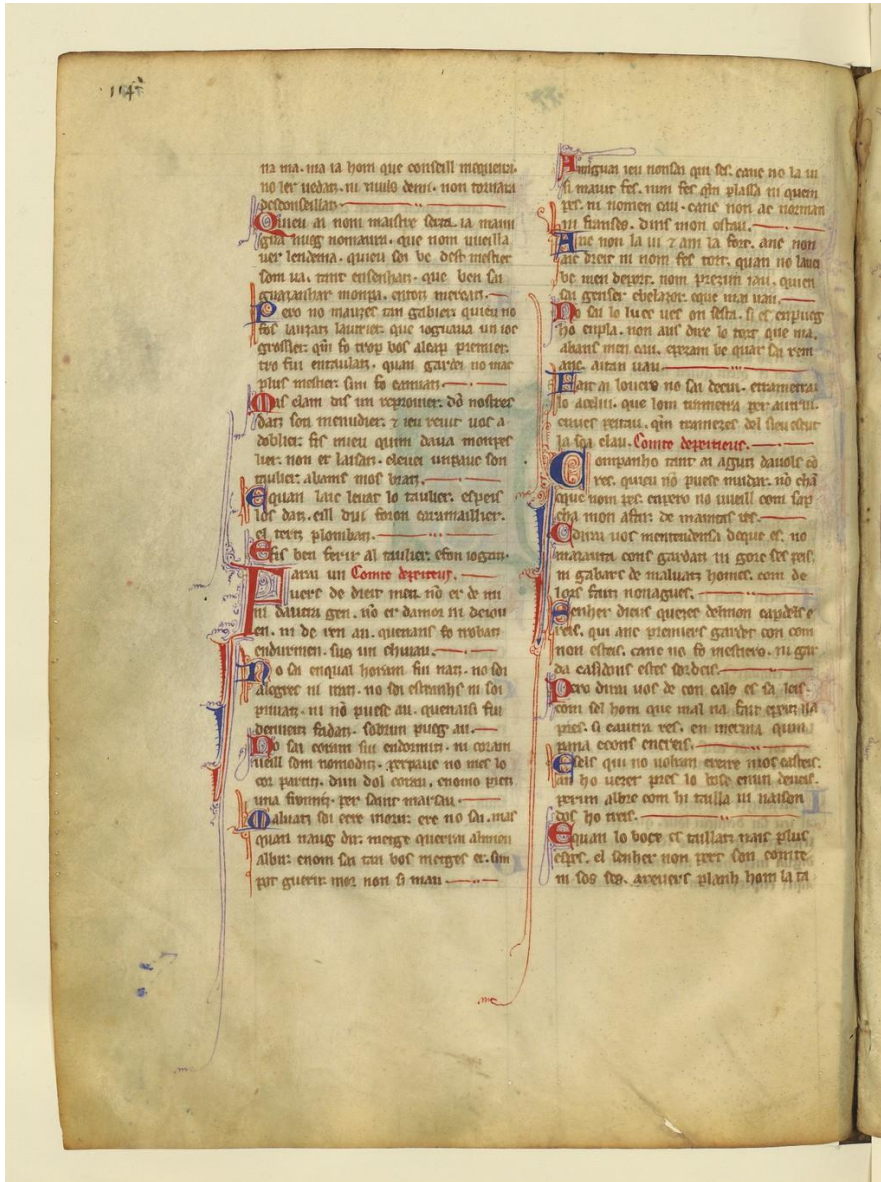 114
na ma. ma ia hom que conseill mequeira.
no ler vedatz. ni nuils de mi. non tornara
desconseillatz.
Quieu ai nom maistre serta. ia mam
igua nueg nomaura. que nom vueilla
ver lendema. quieu soi be dest mestier
som va. tant ensenhatz. que ben sai
guazanhar mon pa. en totz mercatz.
Pero no mauzes tan gabier. quieu no
fos lautrier. que iogaua un ioc
grossier. qim fo trop bos al cap premier.
tro fui entaulatz. quan gardei no mac
plus mestier. sim fo camiatz.
Mas elam dis un reprovier. do nostres
datz son menudier. z ieu revit vos a
doblier. fis mieu quim dava monpes
lier. non er laisatz. e levei un pauc son
taulier. ab ams mos bratz.
E quan laic levat lo taulier. espeis
los datz. eill dui foron caramaillier.
el tertz plombatz.
E fis ben ferir al taulier. e fon iogatz.
Farai un Comte de peiteus.
vers de dreit nien. no er de mi
ni dautra gen. no er damor ni de iou
en. ni de ren au. quenans fo trobatz
en durmen. sus un chivau.
No sai en qual horam fui natz. no soi
alegres ni iratz. no soi estranhs ni soi
privatz. ni no puesc au. quenaisi fui
de nueitz fadatz. sobrun pueg au.
No sai coram fui endormitz. ni coram
veill som nomoditz. per pauc no mes lo
cor partitz. dun dol corau. e nomo pretz
una fromitz. per saint marsau.
Malautz soi e cre morir. e re no sai. mas
quan naug dir. metge querrai al mieu
albir. e nom sai tau bos metges er. sim
pot guerir. mor non si mau
Amiguai ieu non sai qui ses. canc no la vi
si maiut fes. nim fes qim plassa ni quem
pes. ni nomen cau. canc non ac norman
ni franses. dins mon ostau.
Anc non la vi z am la fort. anc non
aic dreit ni nom fes tort. quan no la vei
be men deport. nom prezun iau. quien
sai genser e belazor. e que mai vau.
No sai lo luec ves on sesta. si es en pueg
ho en pla. non aus dire lo tort que ma.
abans men cau. e pezam be quar sai rem
anc. aitan vau.
Fait ai lo vers no sai de cui. e trametrai
lo a celui. que lom trametra per autrui.
enves peitau. qim tramezes del sieu estui
la contra clau. Comte de peitieus.
Companho tant ai agutz davols co
res. quieu no puesc mudar. no cha
que nom pes. enpero no vueill com sap
cha mon afar. de maintas res.
E dirai vos mentendensa de que es. no
magrada cons gardatz ni gorc ses peis.
ni gabars de malvatz homes. com de
lors faitz non agues.
Senher dieus quezes del mon capdels e
reis. qui anc premiers gardet con com
non esteis. canc no fo mestiers. ni gar
da casidons estes sordeis.
Pero dirai vos de con cals es sa leis.
com sel hom que mal na fait e peitz na
pres. si cautra res. en merma quin
pana e cons encreis.
E sels qui no volran creire mos casteis.
an ho vezer pres lo bosc en un deveis.
per un albre com hi tailla ni naison
dos ho treis.
E quan lo bocx es taillatz nais plus
espes. el senher non pert son comte
ni sos ses. a revers planh hom la ta